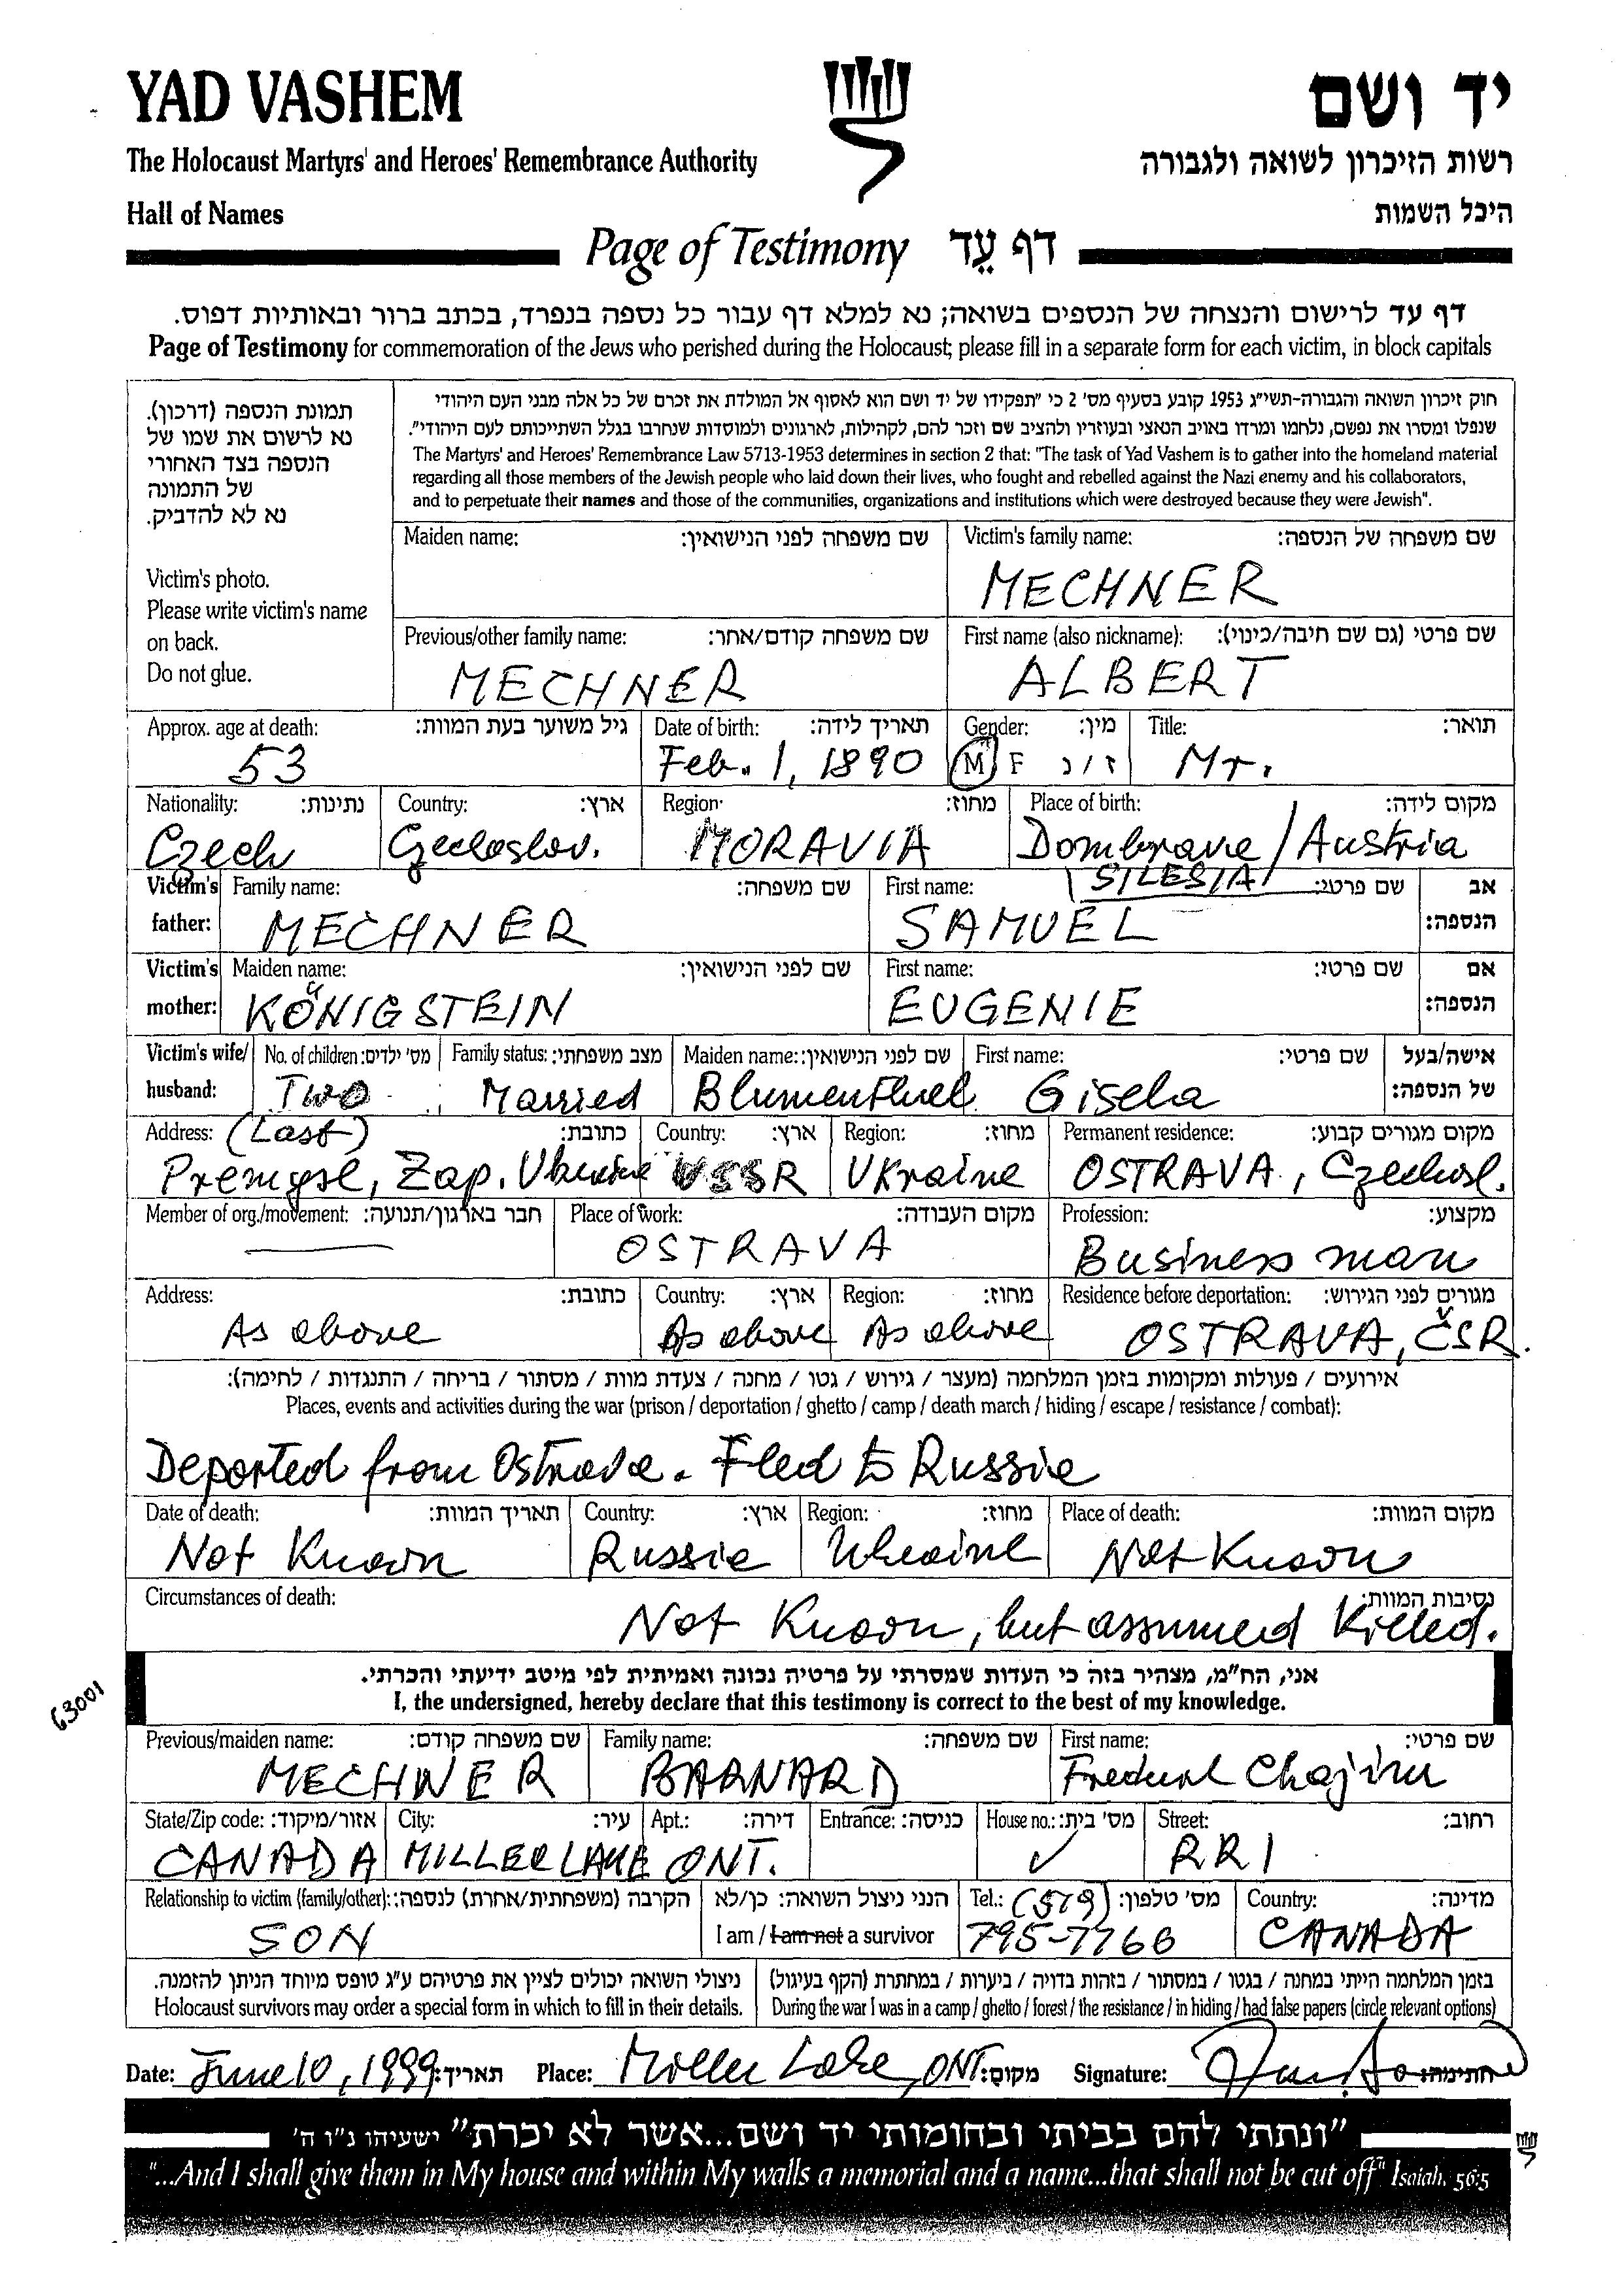 YAD VASHEM
יד ושם
The Holocaust Martyrs' and Heroes' Remembrance Authority
רשות הזיכרון לשואה ולגבורה
Hall of Names
היכל השמות
Page of Testimony דף עֵד
דף עד לרישום והנצחה של הנספים בשואה; נא למלא דף עבור כל נספה בנפרד, בכתב ברור ובאותיות דפוס.
Page of Testimony for commemoration of the Jews who perished during the Holocaust; please fill in a separate form for each victim, in block capitals
תמונת הנספה (דרכון).
נא לרשום את שמו של
הנספה בצד האחורי
של התמונה
נא לא להדביק.
Victim's photo.
Please write victim's name
on back.
Do not glue.
חוק זיכרון השואה והגבורה-תשי"ג 1953 קובע בסעיף מס' 2 כי "תפקידו של יד ושם הוא לאסוף אל המולדת את זכרם של כל אלה מבני העם היהודי
שנפלו ומסרו את נפשם, נלחמו ומרדו באויב הנאצי ובעוזריו ולהציב שם וזכר להם, לקהילות, לארגונים ולמוסדות שנחרבו בגלל השתייכותם לעם היהודי".
The Martyrs' and Heroes' Remembrance Law 5713-1953 determines in section 2 that: "The task of Yad Vashem is to gather into the homeland material
regarding all those members of the Jewish people who laid down their lives, who fought and rebelled against the Nazi enemy and his collaborators,
and to perpetuate their names and those of the communities, organizations and institutions which were destroyed because they were Jewish".
Maiden name: שם משפחה לפני הנישואין: Victim's family name: שם משפחה של הנספה:
MECHNER
Previous/other family name: שם משפחה קודם/אחר: First name (also nickname): שם פרטי (גם שם חיבה/כינוי):
MECHNER ALBERT
Approx. age at death: גיל משוער בעת המוות: Date of birth: תאריך לידה: Gender: מין: Title: תואר:
53 Feb. 1, 1890 M F ז / נ Mr.
Nationality: נתינות: Country: ארץ: Region: מחוז: Place of birth: מקום לידה:
Czech Czechoslov. MORAVIA Dombrave / Austria
SILESIA
Victim's father: Family name: שם משפחה: First name: שם פרטי: אב הנספה:
MECHNER SAMUEL
Victim's mother: Maiden name: שם לפני הנישואין: First name: שם פרטי: אם הנספה:
KÖNIGSTEIN EUGENIE
Victim's wife/ husband: No. of children: מס' ילדים: Family status: מצב משפחתי: Maiden name: שם לפני הנישואין: First name: שם פרטי: אישה/בעל של הנספה:
Two Married Blumenthal Gisela
Address: (Last) כתובת: Country: ארץ: Region: מחוז: Permanent residence: מקום מגורים קבוע:
Premysl, Zap. Ukraine USSR Ukraine OSTRAVA, Czechosl.
Member of org./movement: חבר בארגון/תנועה: Place of work: מקום העבודה: Profession: מקצוע:
OSTRAVA Business man
Address: כתובת: Country: ארץ: Region: מחוז: Residence before deportation: מגורים לפני הגירוש:
As above As above As above OSTRAVA, ČSR.
אירועים / פעולות ומקומות בזמן המלחמה (מעצר / גירוש / גטו / מחנה / צעדת מוות / מסתור / בריחה / התנגדות / לחימה):
Places, events and activities during the war (prison / deportation / ghetto / camp / death march / hiding / escape / resistance / combat):
Deported from Ostrava. Fled to Russia
Date of death: תאריך המוות: Country: ארץ: Region: מחוז: Place of death: מקום המוות:
Not Known Russia Ukraine Not Known
Circumstances of death: נסיבות המוות:
Not Known, but assumed Killed.
אני, הח"מ, מצהיר בזה כי העדות שמסרתי על פרטיה נכונה ואמיתית לפי מיטב ידיעתי והכרתי.
I, the undersigned, hereby declare that this testimony is correct to the best of my knowledge.
63001
Previous/maiden name: שם משפחה קודם: Family name: שם משפחה: First name: שם פרטי:
MECHNER BARNARD Chajim
State/Zip code: אזור/מיקוד: City: עיר: Apt.: דירה: Entrance: כניסה: House no.: מס' בית: Street: רחוב:
CANADA MILLER LAKE ONT. ✓ RR1
Relationship to victim (family/other): הקרבה (משפחתית/אחרת) לנספה: הנני ניצול השואה: כן/לא Tel.: (519) מס' טלפון: Country: מדינה:
SON I am / I am not a survivor 795-7766 CANADA
ניצולי השואה יכולים לציין את פרטיהם ע"ג טופס מיוחד הניתן להזמנה. בזמן המלחמה הייתי במחנה / בגטו / במסתור / בזהות בדויה / ביערות / במחתרת (הקף בעיגול)
Holocaust survivors may order a special form in which to fill in their details. During the war I was in a camp / ghetto / forest / the resistance / in hiding / had false papers (circle relevant options)
Date: June 10, 1999 תאריך: Place: Miller Lake, ONT. מקום: Signature: חתימה:
"ונתתי להם בביתי ובחומותי יד ושם...אשר לא יכרת" ישעיהו נ"ו ה'
"...And I shall give them in My house and within My walls a memorial and a name...that shall not be cut off" Isaiah, 56:5